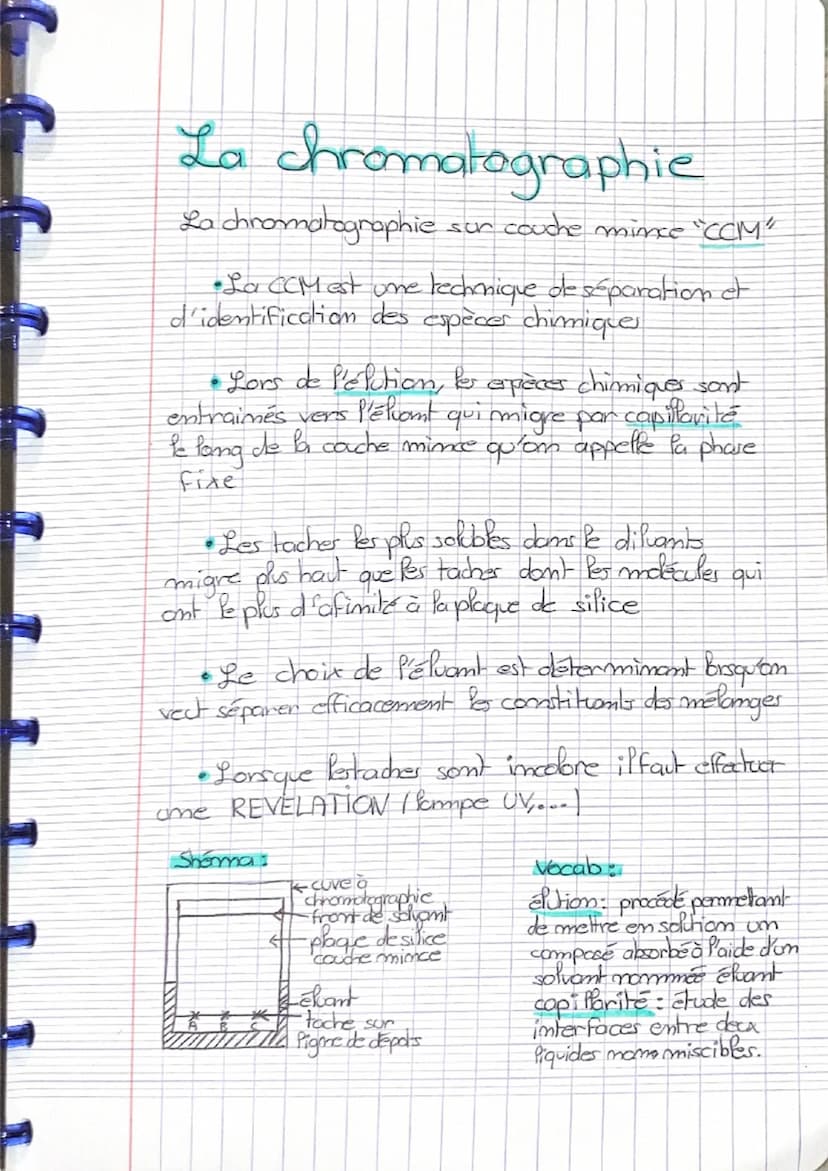 La chromatographie
La chromatographie sur couche mince "CCM"
• La CCM est une technique de séparation et
d'identification des espèces chimiques
• Lors de l'élution, les espèces chimiques sont
entrainés vers l'éluant qui migre par capillarité
le long de la cache mince qu'on appelle la phase
fixe
• Les taches les plus solubles dans le diluants
migre plus haut que les taches dont les molécules qui
ont le plus d'afimité à la plaque de silice
• Le choix de l'éluant est déterminant lorsqu'on
veut séparer efficacement les constituants des mélanges
• Lorsque les taches sont incolore il faut effectuer
une REVELATION (lampe UV,...)
Shéma :
cuve à
chromatographie
front de solvant
plaque de silice
couche mince
éluant
tache sur
ligne de dépots
A B C
Vocab :
élution : procédé permettant
de mettre en solution un
composé absorbé à l'aide d'un
solvant nommée éluant
capillarité : étude des
interfaces entre deux
liquides nono miscibles.